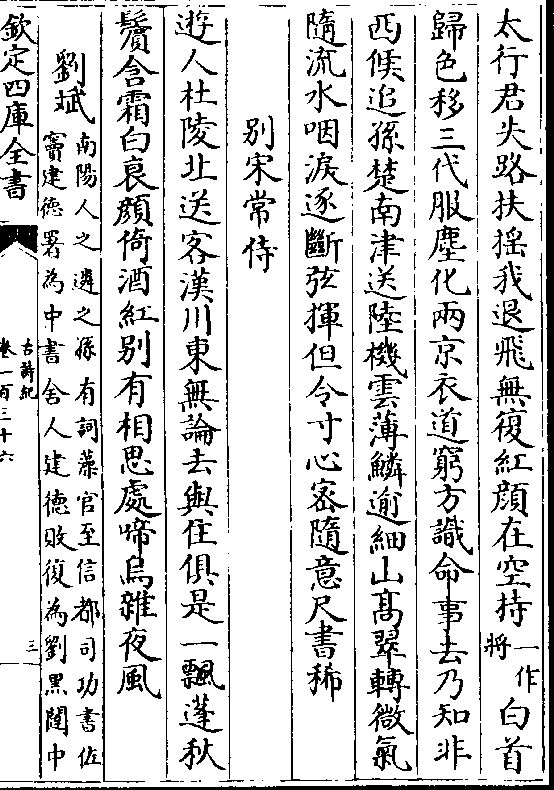 太行君失路扶摇我退飛無復紅顔在空持一作將白首
歸色移三代服塵化兩京衣道窮方識命事去乃知非
西候追孫楚南津送陸機雲薄鱗逾細山髙翠轉微氣
隨流水咽淚逐斷弦揮但令寸心宻隨意尺書稀
别宋常侍
遊人杜陵北送客漢川東無論去與住俱是一飄蓬秋
鬢含霜白衰顔倚酒紅别有相思處啼烏雜夜風
劉斌南陽人之遴之孫有詞藻官至信都司功書佐
竇建德署為中書舍人建德敗復為劉黑闥中
欽定四庫全書
古詩紀
卷一百三十六
三